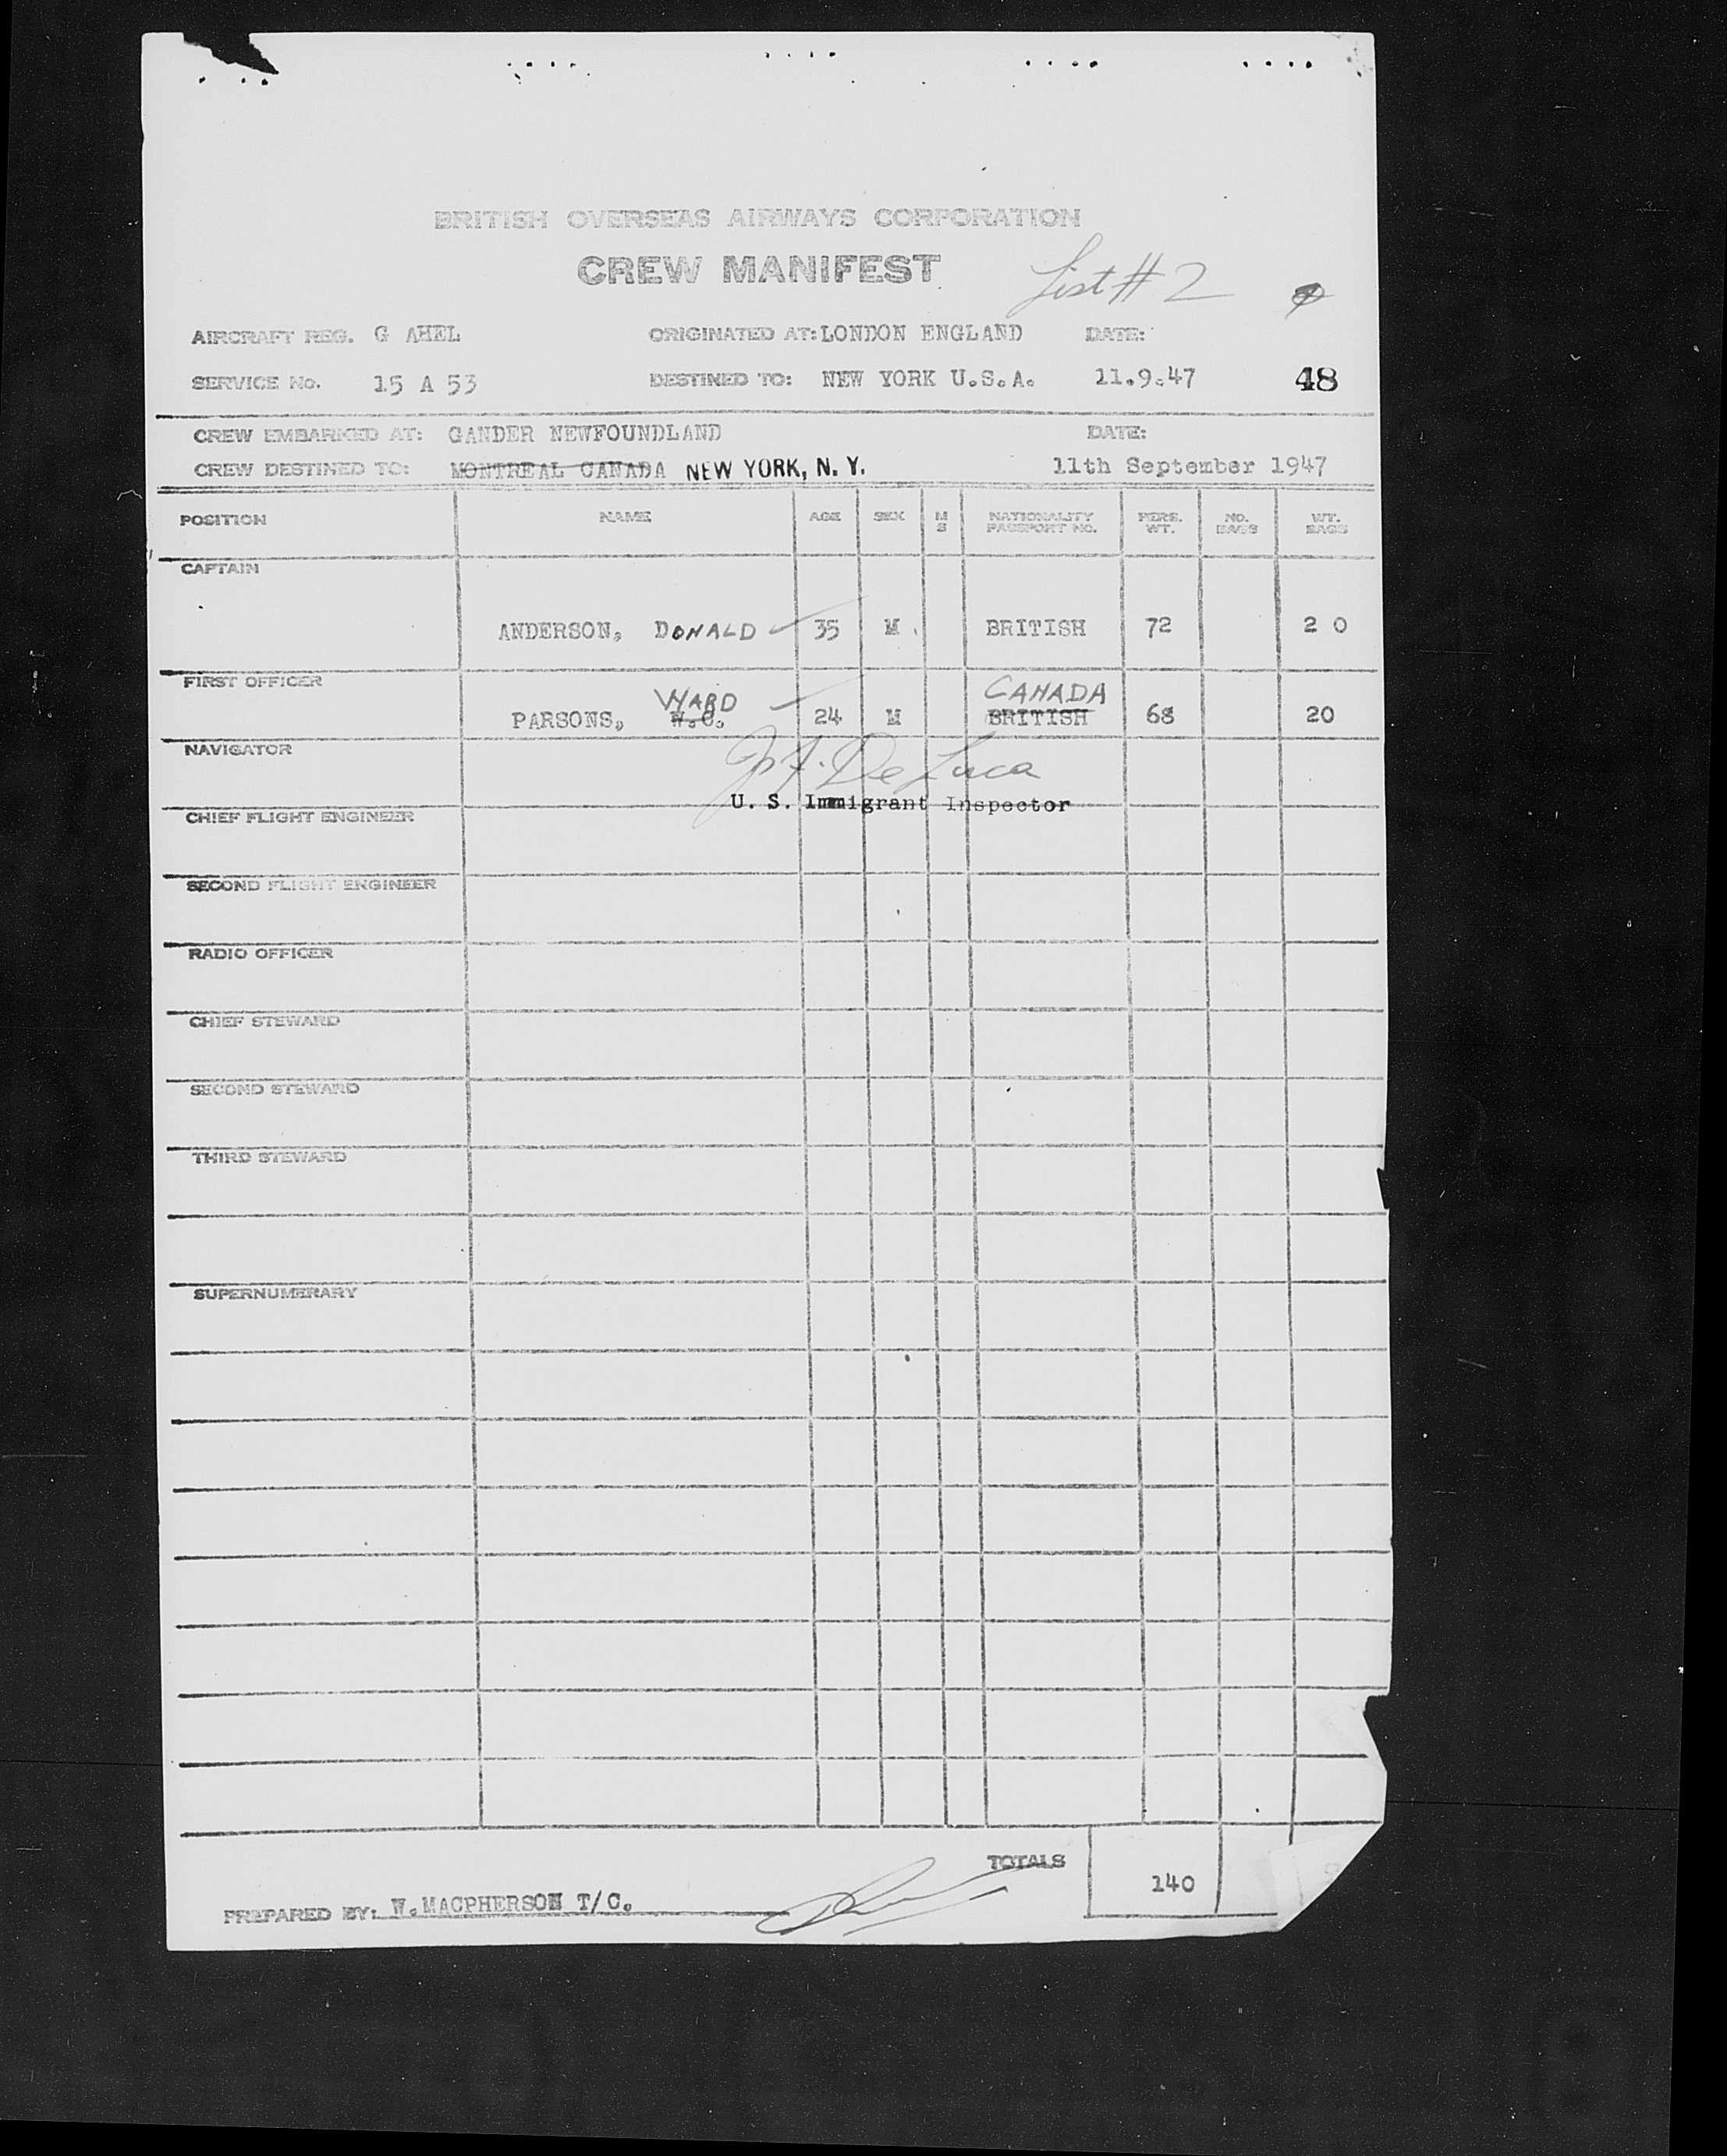 BRITISH OVERSEAS AIRWAYS CORPORATION
CREW MANIFEST
List # 2
AIRCRAFT REG. G AHEL ORIGINATED AT: LONDON ENGLAND DATE:
SERVICE No. 15 A 53 DESTINED TO: NEW YORK U.S.A. 11.9.47 48
CREW EMBARKED AT: GANDER NEWFOUNDLAND DATE:
CREW DESTINED TO: MONTREAL CANADA NEW YORK, N. Y. 11th September 1947
POSITION NAME AGE SEX M S NATIONALITY PASSPORT NO. PERS. WT. NO. BAGS WT. BAGS
CAPTAIN
ANDERSON, DONALD 35 M BRITISH 72 2 0
FIRST OFFICER
WARD CANADA
PARSONS, W.C. 24 M BRITISH 68 20
NAVIGATOR
De Luca
U. S. Immigrant Inspector
CHIEF FLIGHT ENGINEER
SECOND FLIGHT ENGINEER
RADIO OFFICER
CHIEF STEWARD
SECOND STEWARD
THIRD STEWARD
SUPERNUMERARY
TOTALS
140
PREPARED BY: W.MACPHERSON T/C.